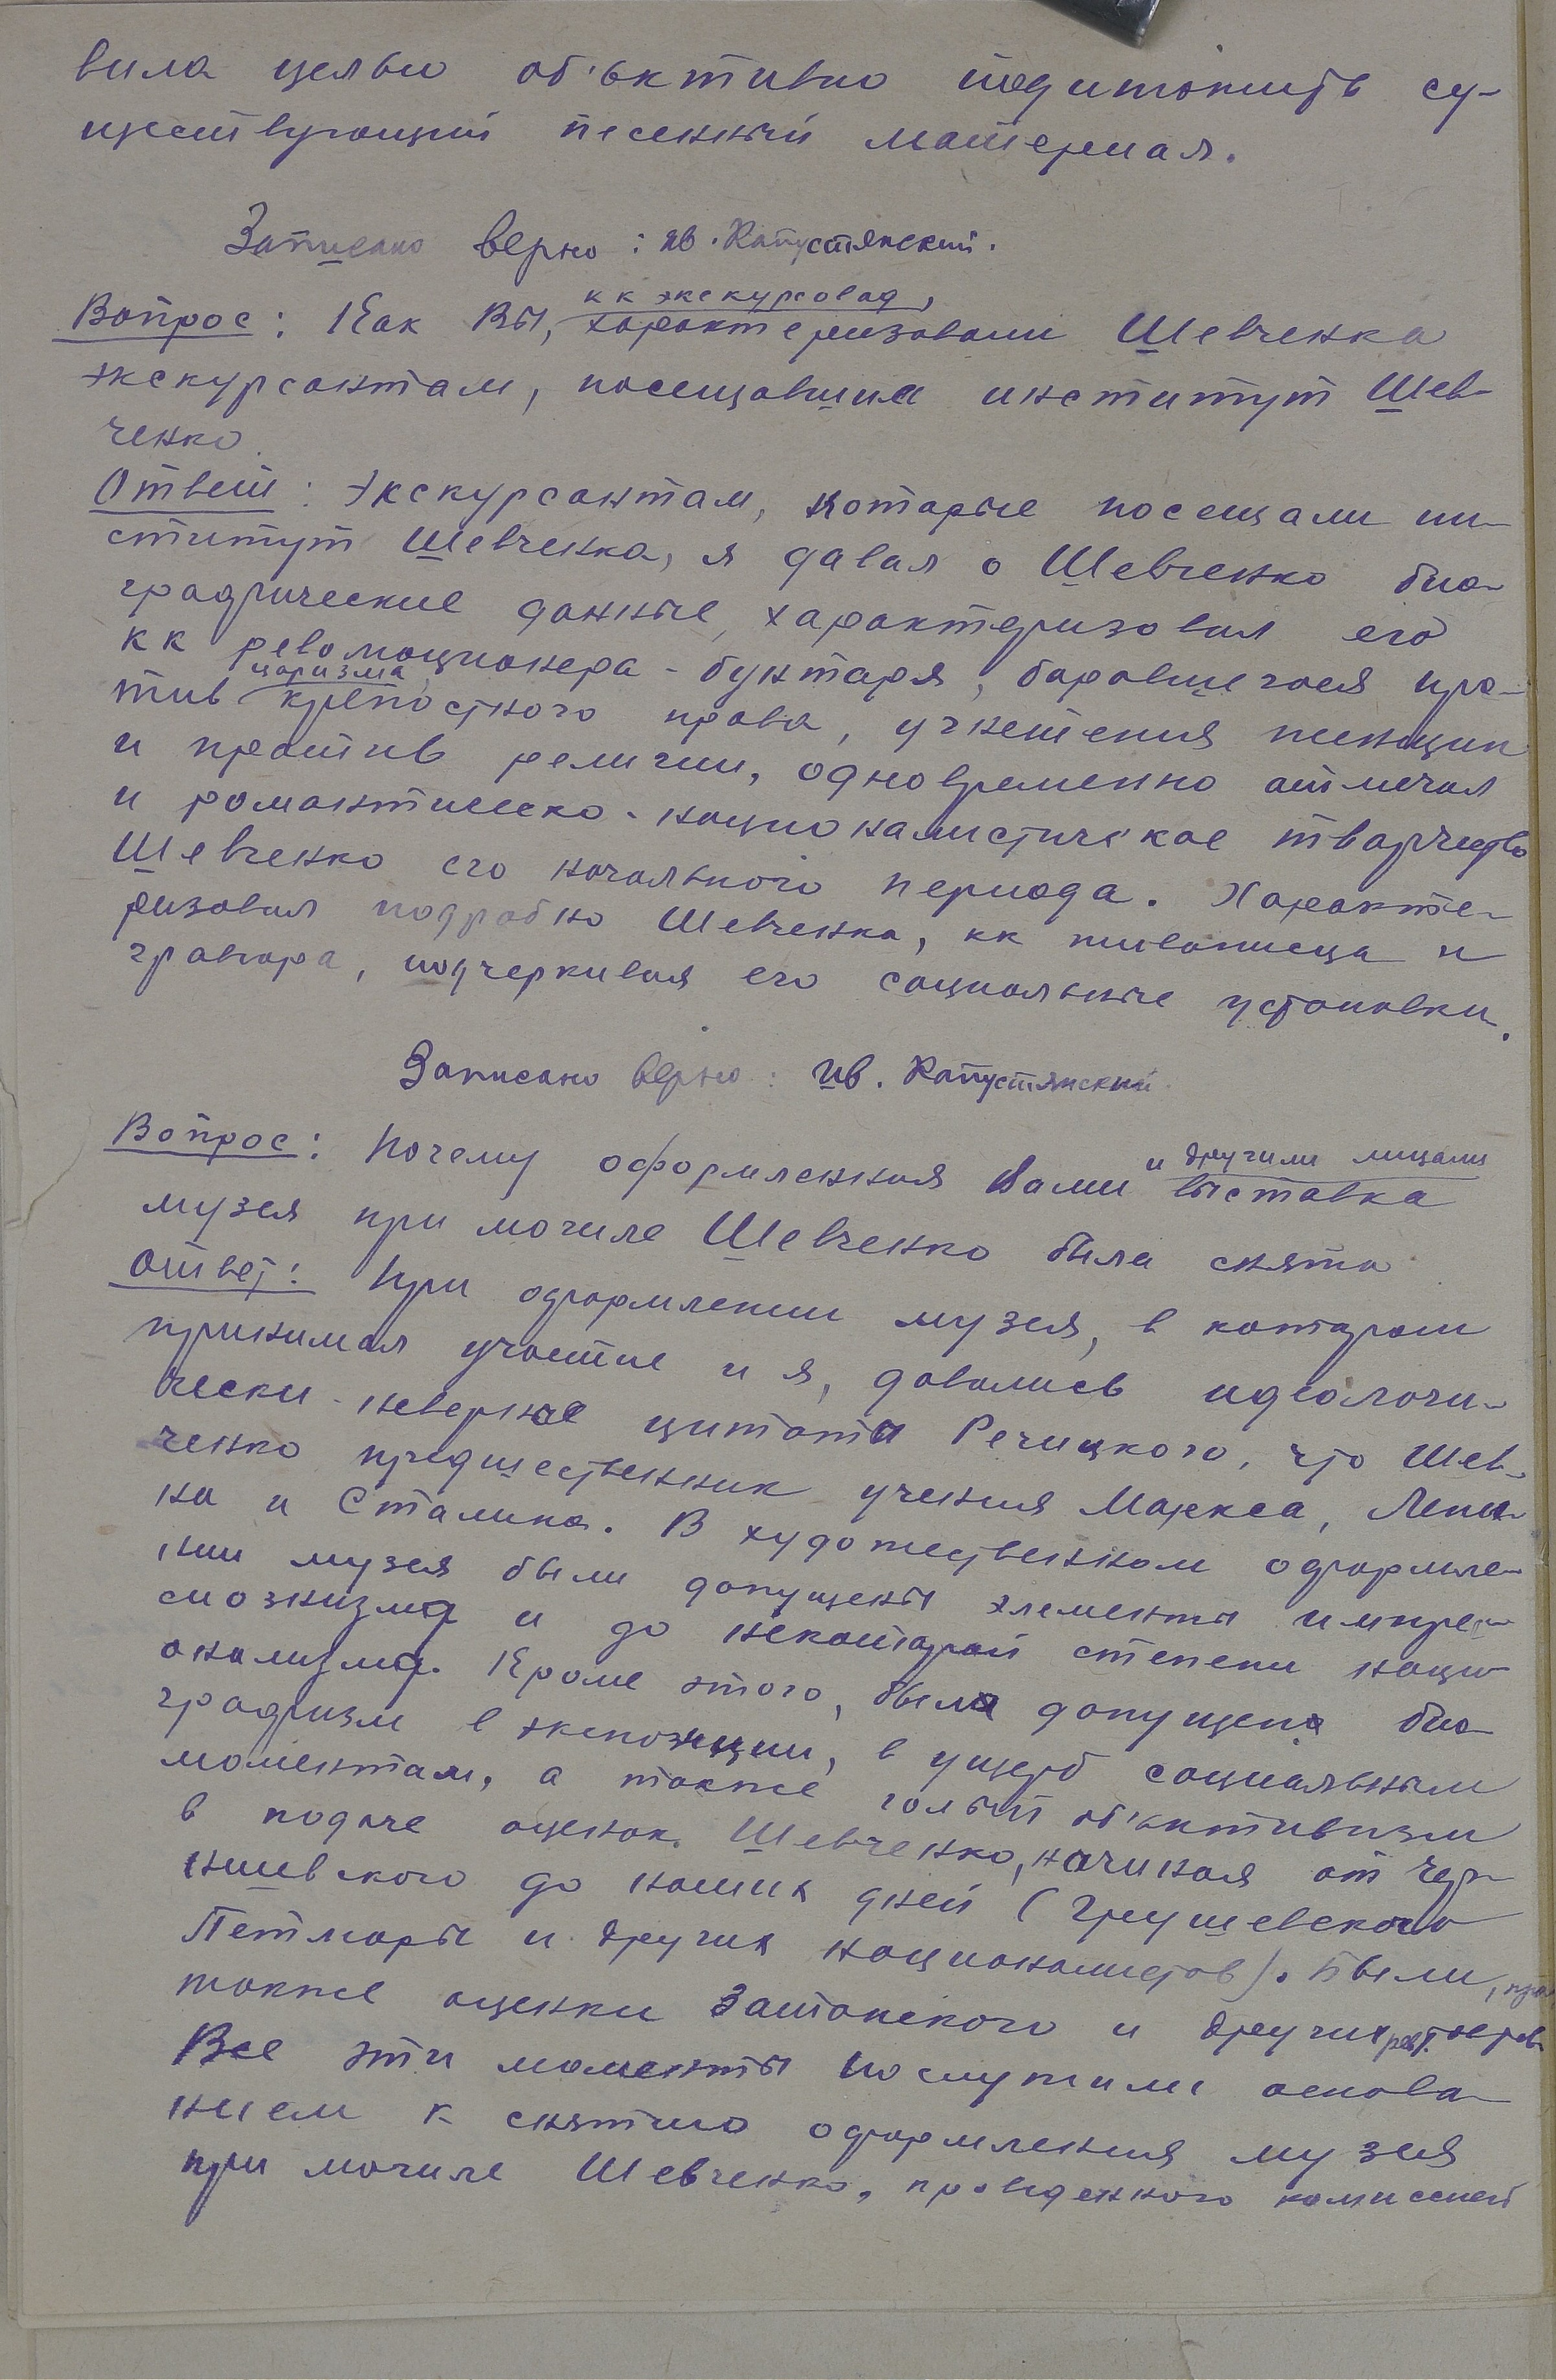 вила целью об'ективно подитожить су-
ществующий песенный материал.
Записано верно: Ив. Капустянский.
кк экскурсовод,
Вопрос: Как Вы, характеризовали Шевченка
экскурсантам, посещавшим институт Шев-
ченко.
Ответ: Экскурсантам, которые посещали ин-
ститут Шевченка, я давал о Шевченко био-
графические данные, характеризовал его
кк революционера-бунтаря, боровшегося про-
царизма,
тив крепостного права, угнетения женщин
и против религии, одновременно отмечал
и романтическо-националистическое творчество
Шевченко его начального периода. Характе-
ризовал подробно Шевченка, кк живописца и
гравюра, подчеркивая его социальные установки.
Записано верно: Ив. Капустянский.
и другими лицами
Вопрос: Почему оформленная Вами выставка
музея при могиле Шевченко была снята
Ответ: При оформлении музея, в котором
принимал участие и я, давались идеологи-
чески-неверные цитаты Речицкого, что Шев-
ченко предшественник учения Маркса, Лени-
на и Сталина. В художественном оформле-
нии музея были допущены элементы импре-
сионизма и до некоторой степени наци-
онализма. Кроме этого, был допущен био-
графизм в экспозиции, в ущерб социальным
моментам, а также голый об'ективизм
в подаче оценок Шевченко, начиная от Чер-
нишевского до наших дней (Грушевского
Петлюры и других националистов). Были,
также оценки Затонского и других
Все эти моменты послужили основа-
нием к снятию оформления музея
при могиле Шевченко, проведенного комиссией